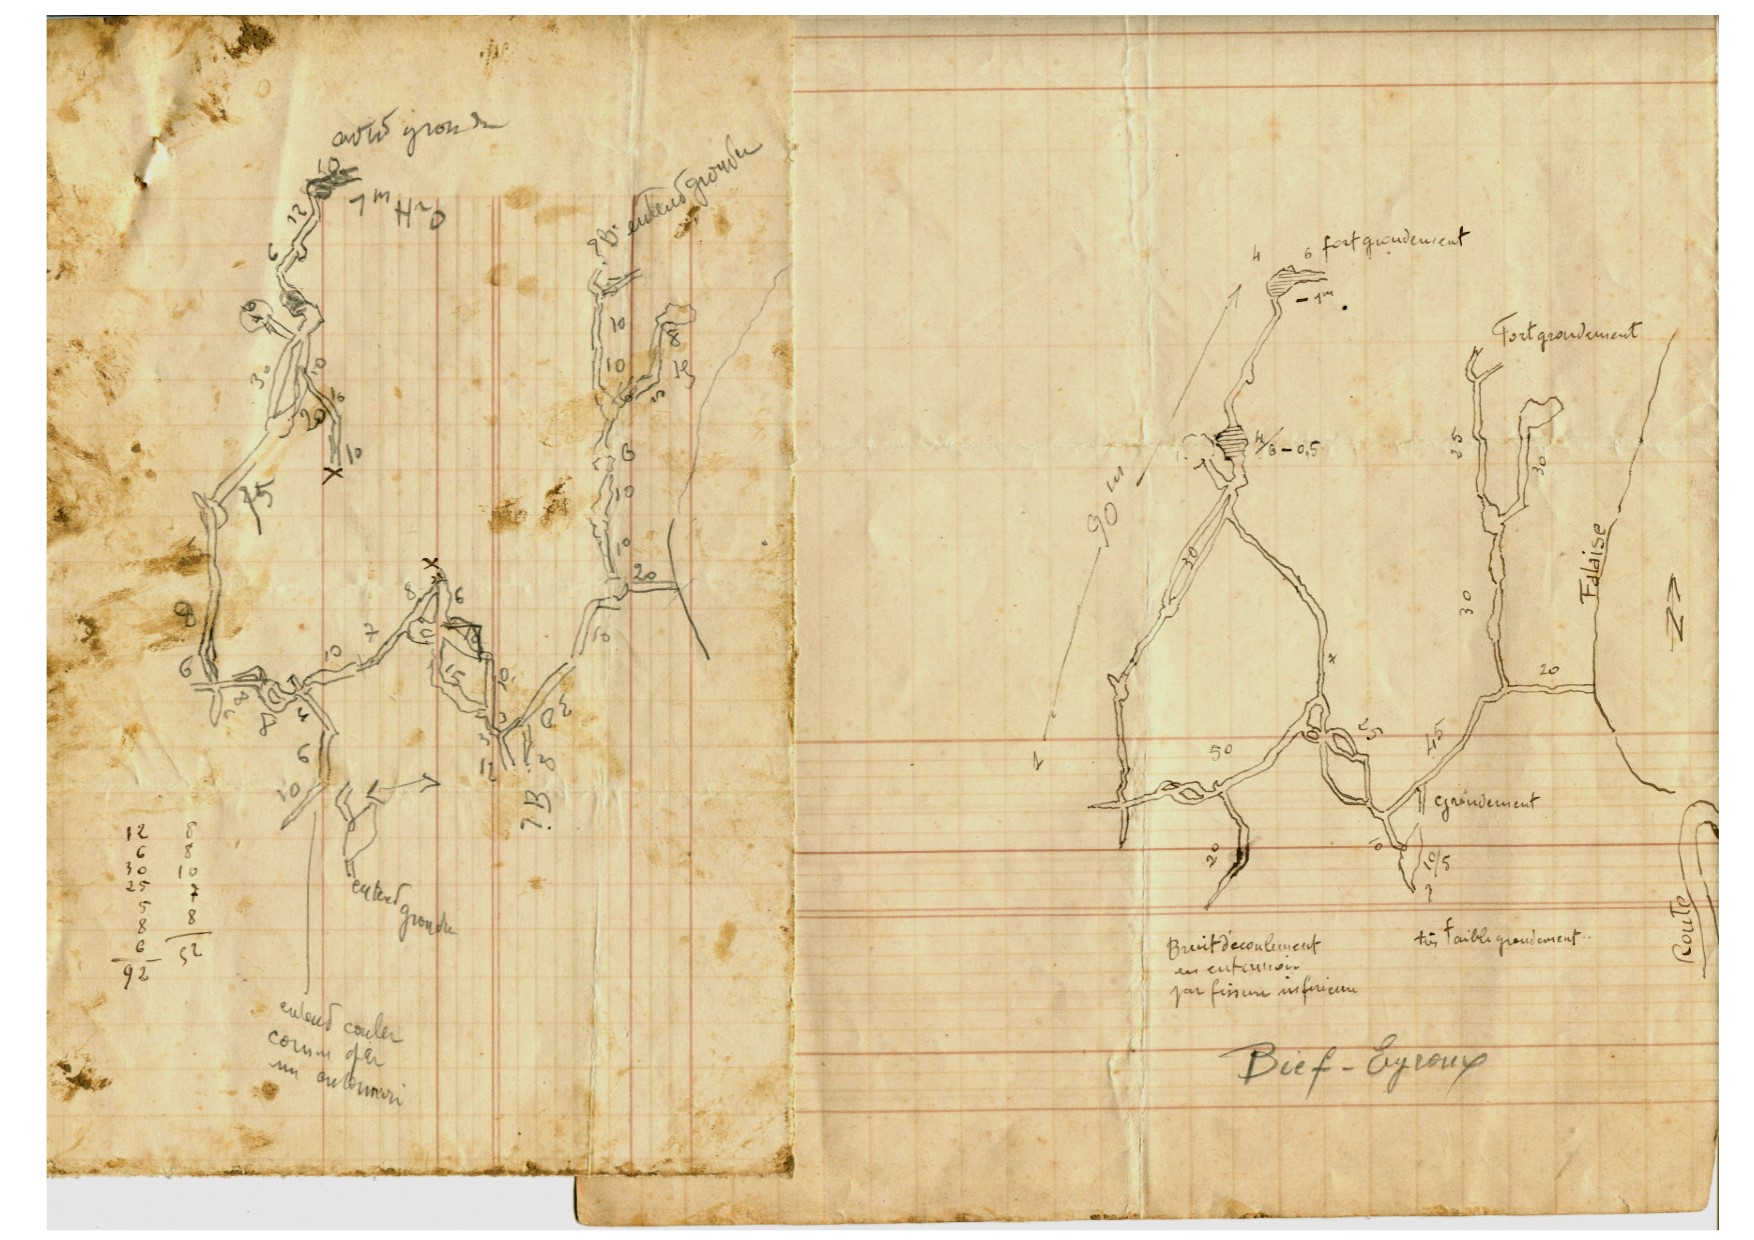 entend gronder
10
1m H2O
12
6
10
30
10
20
10
10
X
25
8
6
8
8
4
10
7
6
10
X
8
6
10
15
10
3
12
8
?B
20
10
20
10
10
6
10
10
8
15
5
?B. entend gronder
entend gronder
12
6
30
25
5
8
6
92
8
8
10
7
8
52
entend couler
comme par
un entonnoir
4
6 fort grondement
- 1m
90 m
4/6 - 0,5
30
Fort grondement
25
30
30
Falaise
20
N
50
25
45
grondement
20
10
10/5
?
Bruit d'écoulement
en entonnoir
par fissure inférieure
très faible grondement
Route
Bief - Eyroux